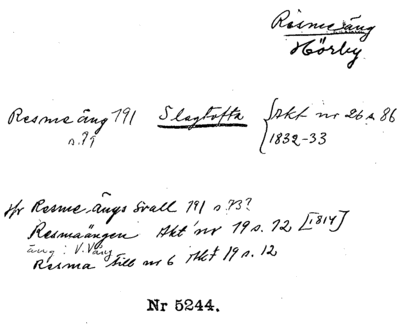 Resme äng
Hörby
Resme äng 191 Slagtofta { Akt nr 26 86
s. ?? 1832-33
Resme ängs Svall 191 s. ?3?
Resmaängen Akt nr 19 s. 12 [1814]
äng: V. Väng
Resma till nr 6 Akt 19 s. 12
Nr 5244.